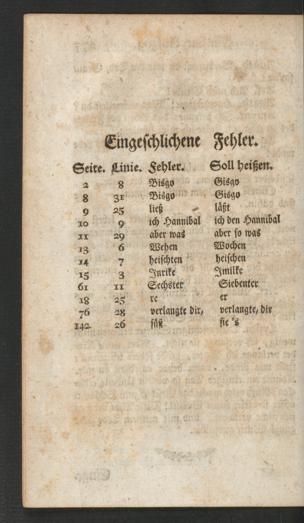 Eingeschlichene Fehler.
Seite. Linie. Fehler. Soll heißen.
2 8 Bisgo Gisgo
8 31 Bisgo Gisgo
9 25 ließ läßt
10 9 ich Hannibal ich den Hannibal
11 29 aber was aber so was
13 6 Wehen Wochen
14 7 heischten heischen
15 3 Inrike Imilke
61 11 Sechster Siebenter
18 25 re er
76 28 verlangte dir, verlangte, dir
142 26 füß sie 's